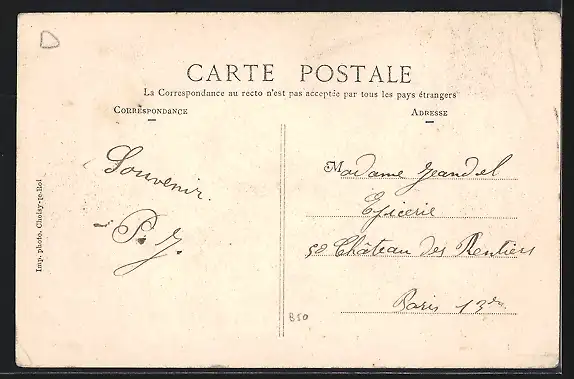 D
CARTE POSTALE
La Correspondance au recto n'est pas acceptée par tous les pays étrangers
CORRESPONDANCE
ADRESSE
Souvenir.
P. J.
Madame Jeandel
Epicerie
50 Château des Rentiers
Paris 13e
B50
Imp. photo. Choisy-le-Roi